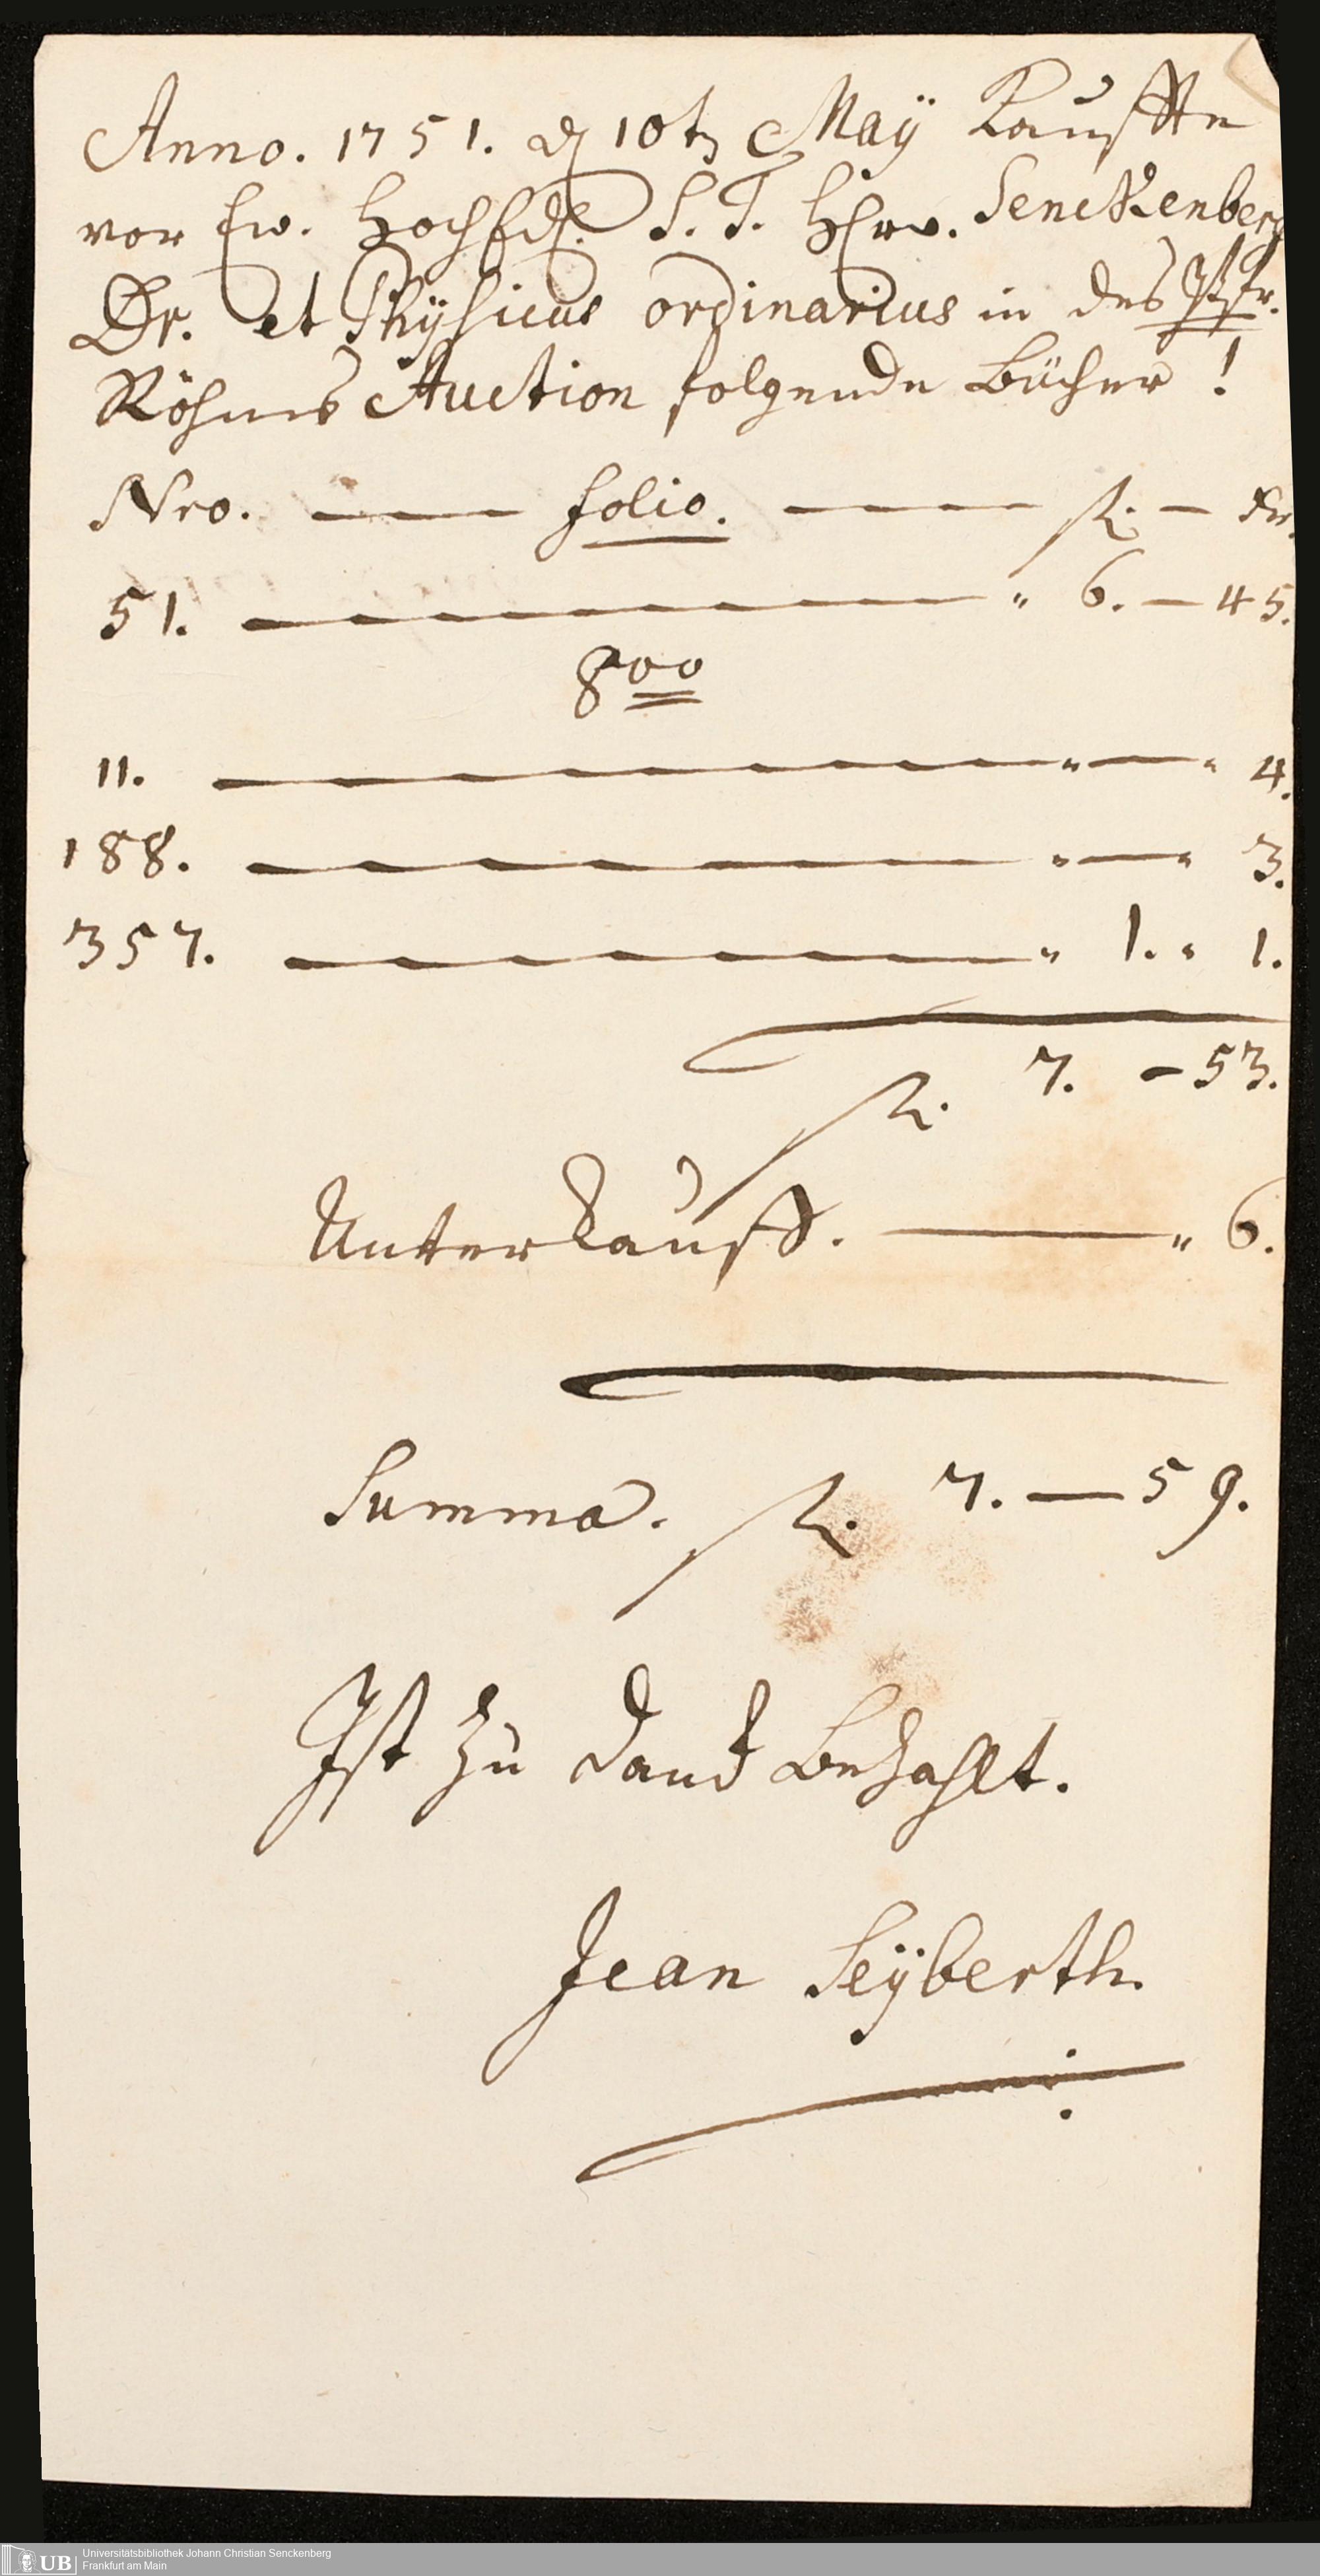 Anno. 1751. d 10t May Kauffte
vor Ew. HochEdl. S. T. Hhrn. Senckenberg
Dr. et Physicus ordinarius in des Pfr.
Röhms Auction folgende Bücher!
Nro. — folio. — fl. — Kr.
51. — " 6. — 45.
8vo
11. — " — " 4.
188. — " — " 3.
357. — " 1. " 1.
fl. 7. — 53.
Unterkauff. — " 6.
Summa. fl. 7. — 59.
Ist zu danck bezahlt.
Jean Seÿberth.
UB Universitätsbibliothek Johann Christian Senckenberg
Frankfurt am Main